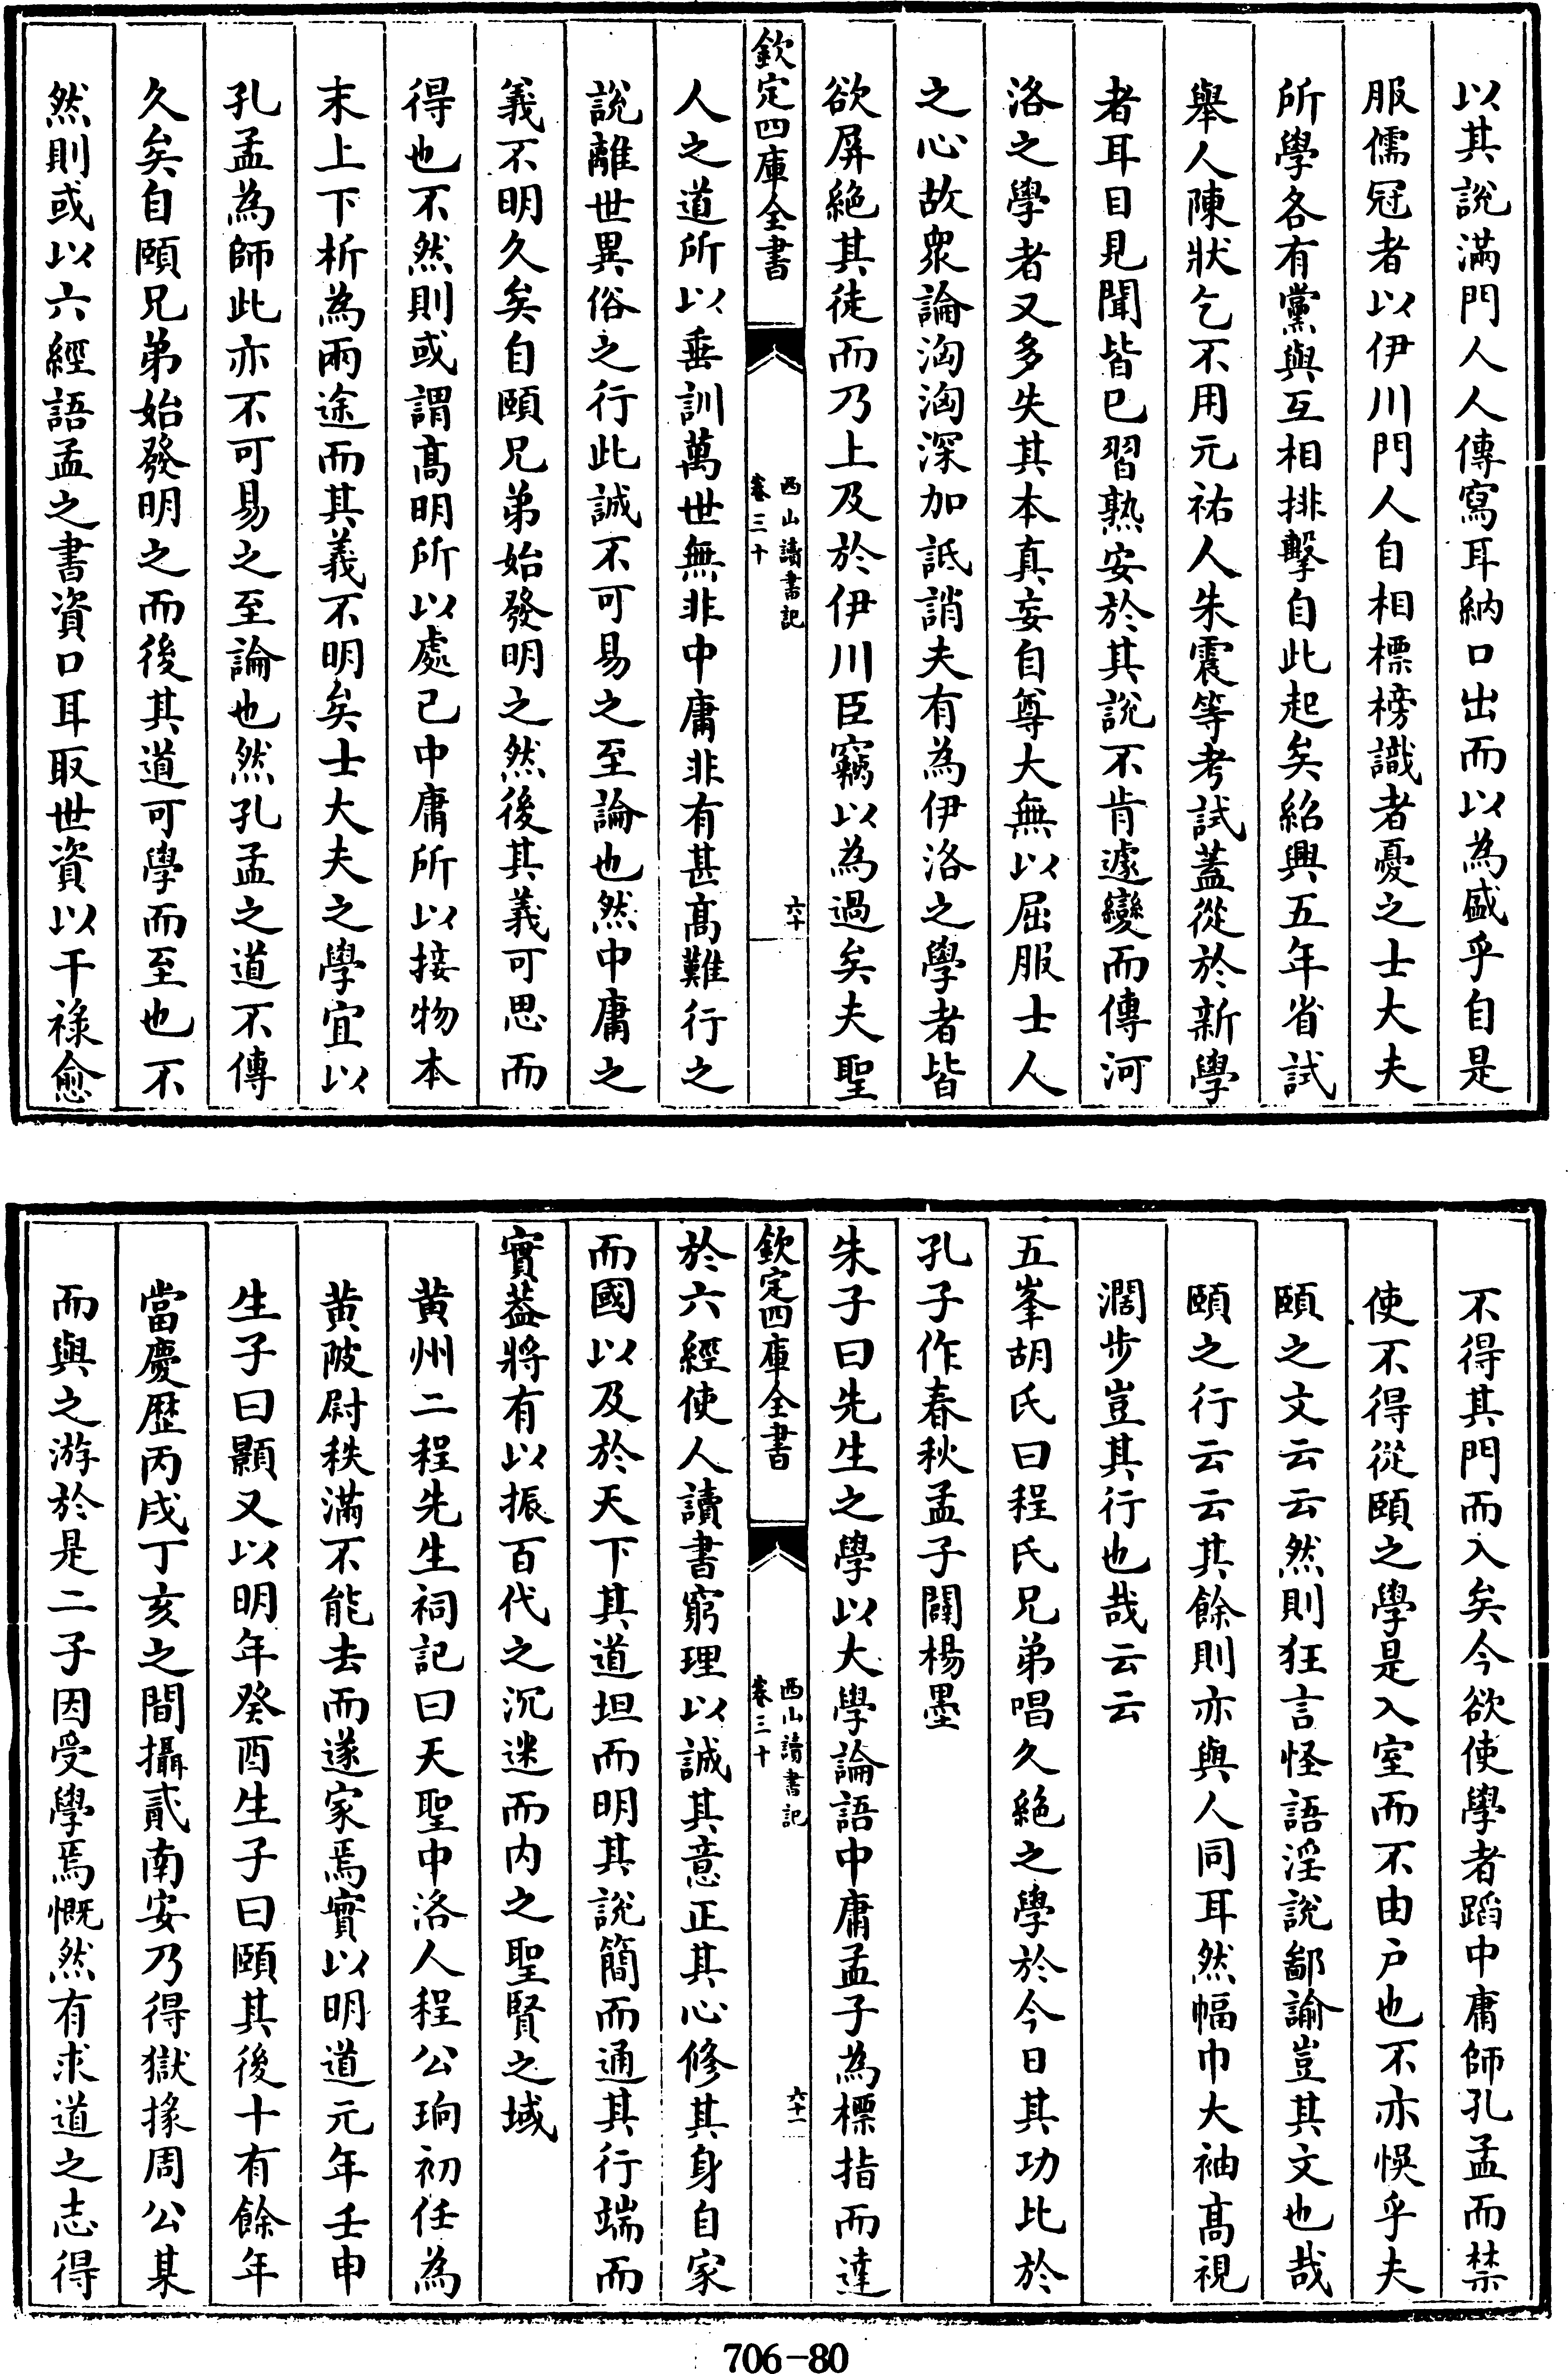 以其說滿門人人傳寫耳納口出而以為盛乎自是
服儒冠者以伊川門人自相標榜識者憂之士大夫
所學各有黨與互相排擊自此起矣紹興五年省試
舉人陳狀乞不用元祐人朱震等考試蓋從於新學
者耳目見聞皆已習熟安於其說不肯遽變而傳河
洛之學者又多失其本真妄自尊大無以屈服士人
之心故衆論洶洶深加詆誚夫有為伊洛之學者皆
欲屏絶其徒而乃上及於伊川臣竊以為過矣夫聖
欽定四庫全書
西山讀書記
卷三十
六十
人之道所以垂訓萬世無非中庸非有甚髙難行之
說離世異俗之行此誠不可易之至論也然中庸之
義不明久矣自頤兄弟始發明之然後其義可思而
得也不然則或謂髙明所以處己中庸所以接物本
末上下析為兩途而其義不明矣士大夫之學宜以
孔孟為師此亦不可易之至論也然孔孟之道不傳
久矣自頤兄弟始發明之而後其道可學而至也不
然則或以六經語孟之書資口耳取世資以干祿愈
不得其門而入矣今欲使學者蹈中庸師孔孟而禁
使不得從頤之學是入室而不由户也不亦悞乎夫
頤之文云云然則狂言怪語淫說鄙諭豈其文也哉
頤之行云云其餘則亦與人同耳然幅巾大袖髙視
濶步豈其行也哉云云
五峯胡氏曰程氏兄弟唱久絶之學於今日其功比於
孔子作春秋孟子闢楊墨
朱子曰先生之學以大學論語中庸孟子為標指而達
欽定四庫全書
西山讀書記
卷三十
六十一
於六經使人讀書窮理以誠其意正其心修其身自家
而國以及於天下其道坦而明其說簡而通其行端而
實葢將有以振百代之沉迷而内之聖賢之域
黄州二程先生祠記曰天聖中洛人程公珦初任為
黄陂尉秩滿不能去而遂家焉實以明道元年壬申
生子曰顥又以明年癸酉生子曰頤其後十有餘年
當慶歴丙戌丁亥之間攝貳南安乃得獄掾周公某
而與之游於是二子因受學焉慨然有求道之志得
706-80